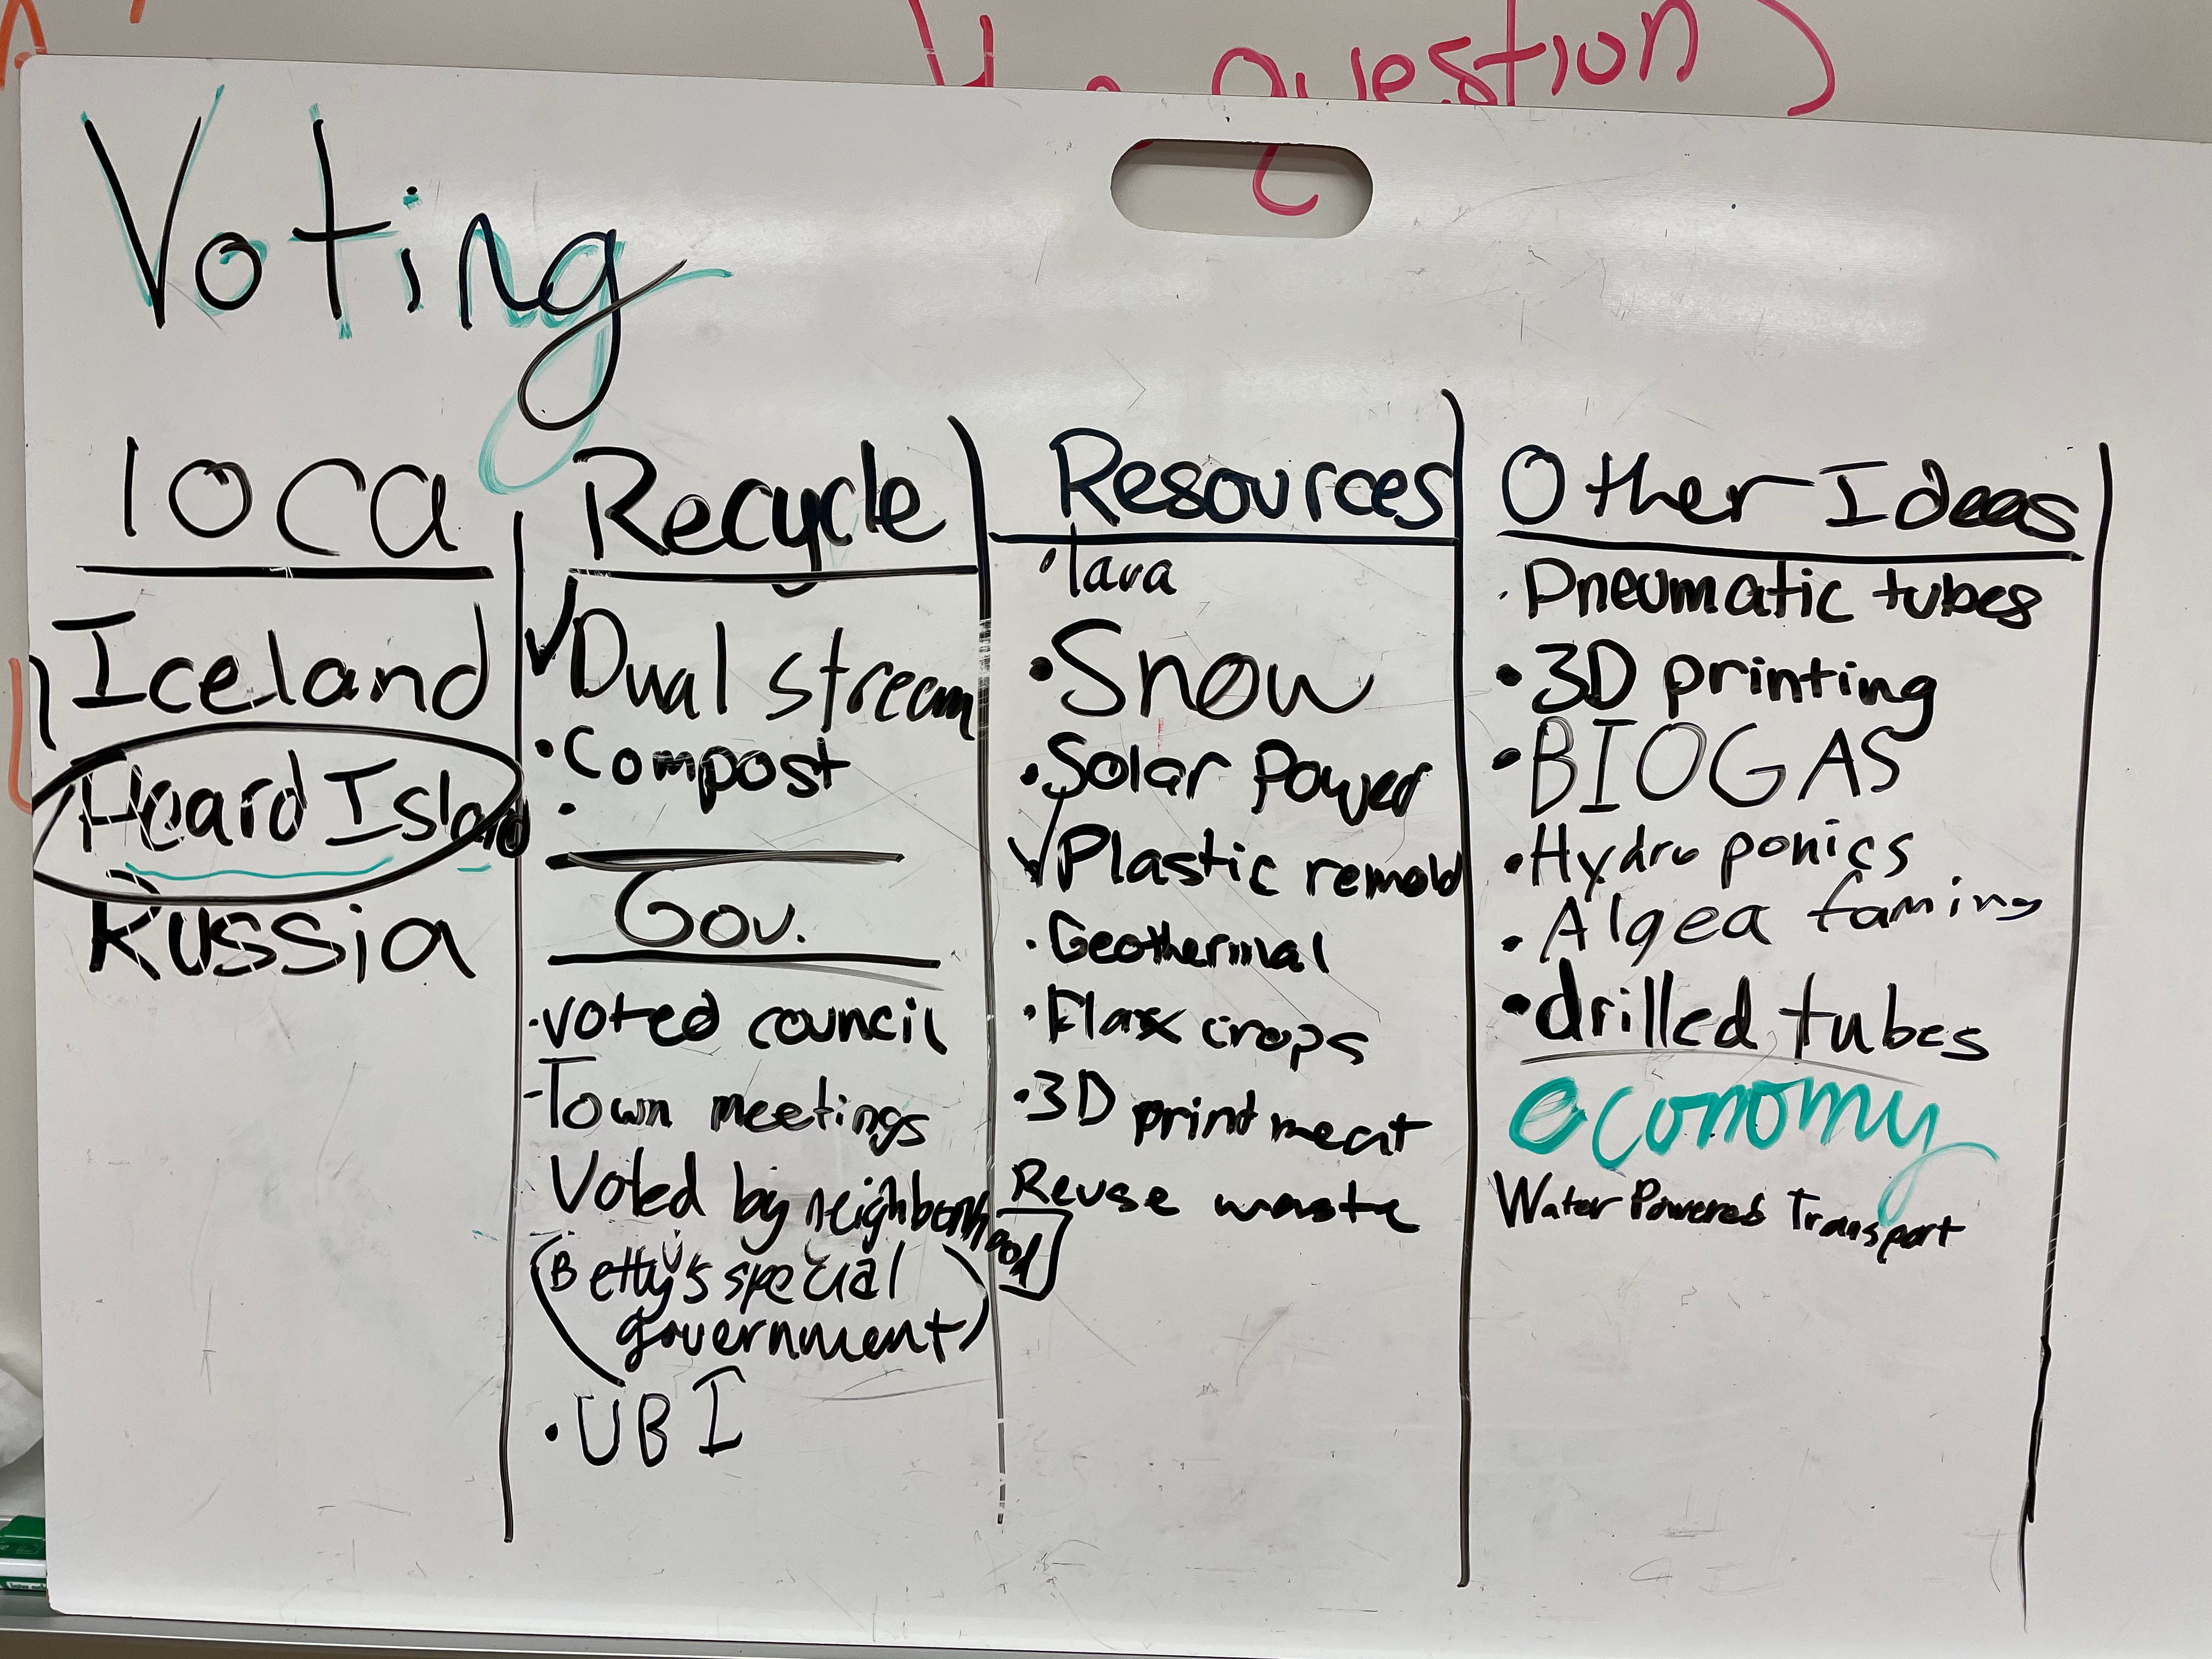 question)
Voting
loca
Iceland
Heard Island
Russia
Recycle
Dual stream
Compost
Gov.
voted council
Town meetings
Voted by neighborhood
(Betty's special
government)
UBI
Resources
lava
Snow
Solar Power
Plastic remold
Geothermal
Flax crops
3D print meat
Reuse waste
Other Ideas
Pneumatic tubes
3D printing
BIOGAS
Hydroponics
Algea faming
drilled tubes
economy
Water Powered Transport